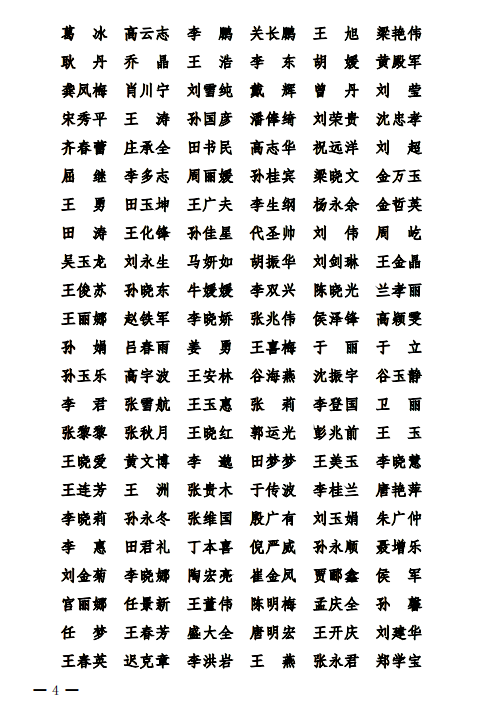 葛　冰 高云志 李　鹏 关长鹏 王　旭 梁艳伟
耿　丹 乔　晶 王　浩 李　东 胡　媛 黄殿军
龚凤梅 肖川宁 刘雪纯 戴　辉 曾　丹 刘　莹
宋秀平 王　涛 孙国彦 潘俸绮 刘荣贵 沈忠孝
齐春蕾 庄承全 田书民 高志华 祝远洋 刘　超
屈　继 李多志 周丽媛 孙桂宾 梁晓文 金万玉
王　勇 田玉坤 王广夫 李生纲 杨永余 金哲英
田　涛 王化锋 孙佳星 代圣帅 刘　伟 周　屹
吴玉龙 刘永生 马妍如 胡振华 刘剑琳 王金晶
王俊苏 孙晓东 牛媛媛 李双兴 陈晓光 兰孝丽
王丽娜 赵铁军 李晓娇 张兆伟 侯泽锋 高颖雯
孙　娟 吕春雨 姜　勇 王喜梅 于　丽 于　立
孙玉乐 高宇波 王安林 谷海燕 沈振宇 谷玉静
李　君 张雪航 王玉惠 张　莉 李登国 卫　丽
张黎黎 张秋月 王晓红 郭运光 彭兆前 王　玉
王晓爱 黄文博 李　 田梦梦 王美玉 李晓慧
王连芳 王　洲 张贵木 于传波 李桂兰 唐艳萍
李晓莉 孙永冬 张维国 殷广有 刘玉娟 朱广仲
李　惠 田君礼 丁本喜 倪严威 孙永顺 聂增乐
刘金菊 李晓娜 陶宏亮 崔金凤 贾郦鑫 侯　军
官丽娜 任景新 王董伟 陈明梅 孟庆全 孙　馨
任　梦 王春芳 盛大全 唐明宏 王开庆 刘建华
王春英 迟克章 李洪岩 王　燕 张永君 郑学宝
— 4 —